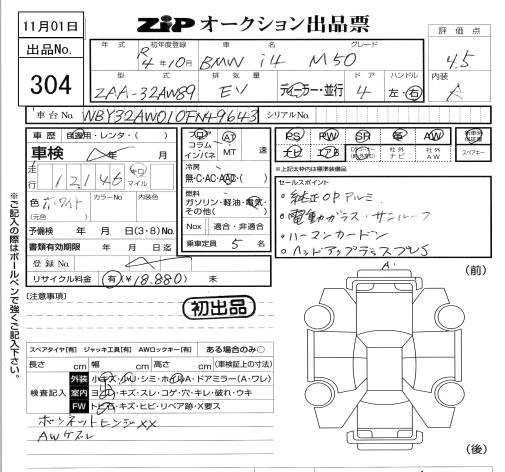 11月01日
ZIP オークション出品票
出品No.
304
評価点
4.5
内装
A
年式 初年度登録 車名 グレード
R4年10月 BMW i4 M50
型式 排気量 ドア ハンドル
ZAA-32AW89 EV ディーラー・並行 4 左・右
車台No. WBY32AW010FN49643 シリアルNo.
車歴 自家用・レンタ・( )
車検 年 月
走行 12146 キロ マイル
色 ホワイト カラーNo 内装色
(元色)
予備検 年 月 日(3・8)No.
書類有効期限 年 月 日迄
登録No.
リサイクル料金 有(¥18.880) 未
フロア コラム インパネ AT MT 速
冷房
無・C・AC・AAC( )
燃料
ガソリン・軽油・電気・その他( )
Nox 適合・非適合
乗車定員 5 名
PS PW SR 革 AW 新車時保証書
ナビ エアB 社外ナビ 社外AW スペアキー
※上記太枠内は標準装備品
セールスポイント
・純正OPアルミ
・電動ガラスサンルーフ
・ハーマンカードン
・ヘッドアップディスプレS
[注意事項]
初出品
※ご記入の際はボールペンで強くご記入下さい。
スペアタイヤ[有] ジャッキ工具[有] AWロックキー[有] ある場合のみ○
長さ cm 幅 cm 高さ cm (車検証上の寸法)
検査記入
外装 小キズ・小リ・シミ・ホイルA・ドアミラー(A・ワレ)
室内 ヨゴレ・キズ・スレ・コゲ・穴・キレ・破れ・ウキ
FW トビ石・キズ・ヒビ・リペア跡・X要ス
ボンネットヒンジXX
AWケズレ
A'
(前)
(後)